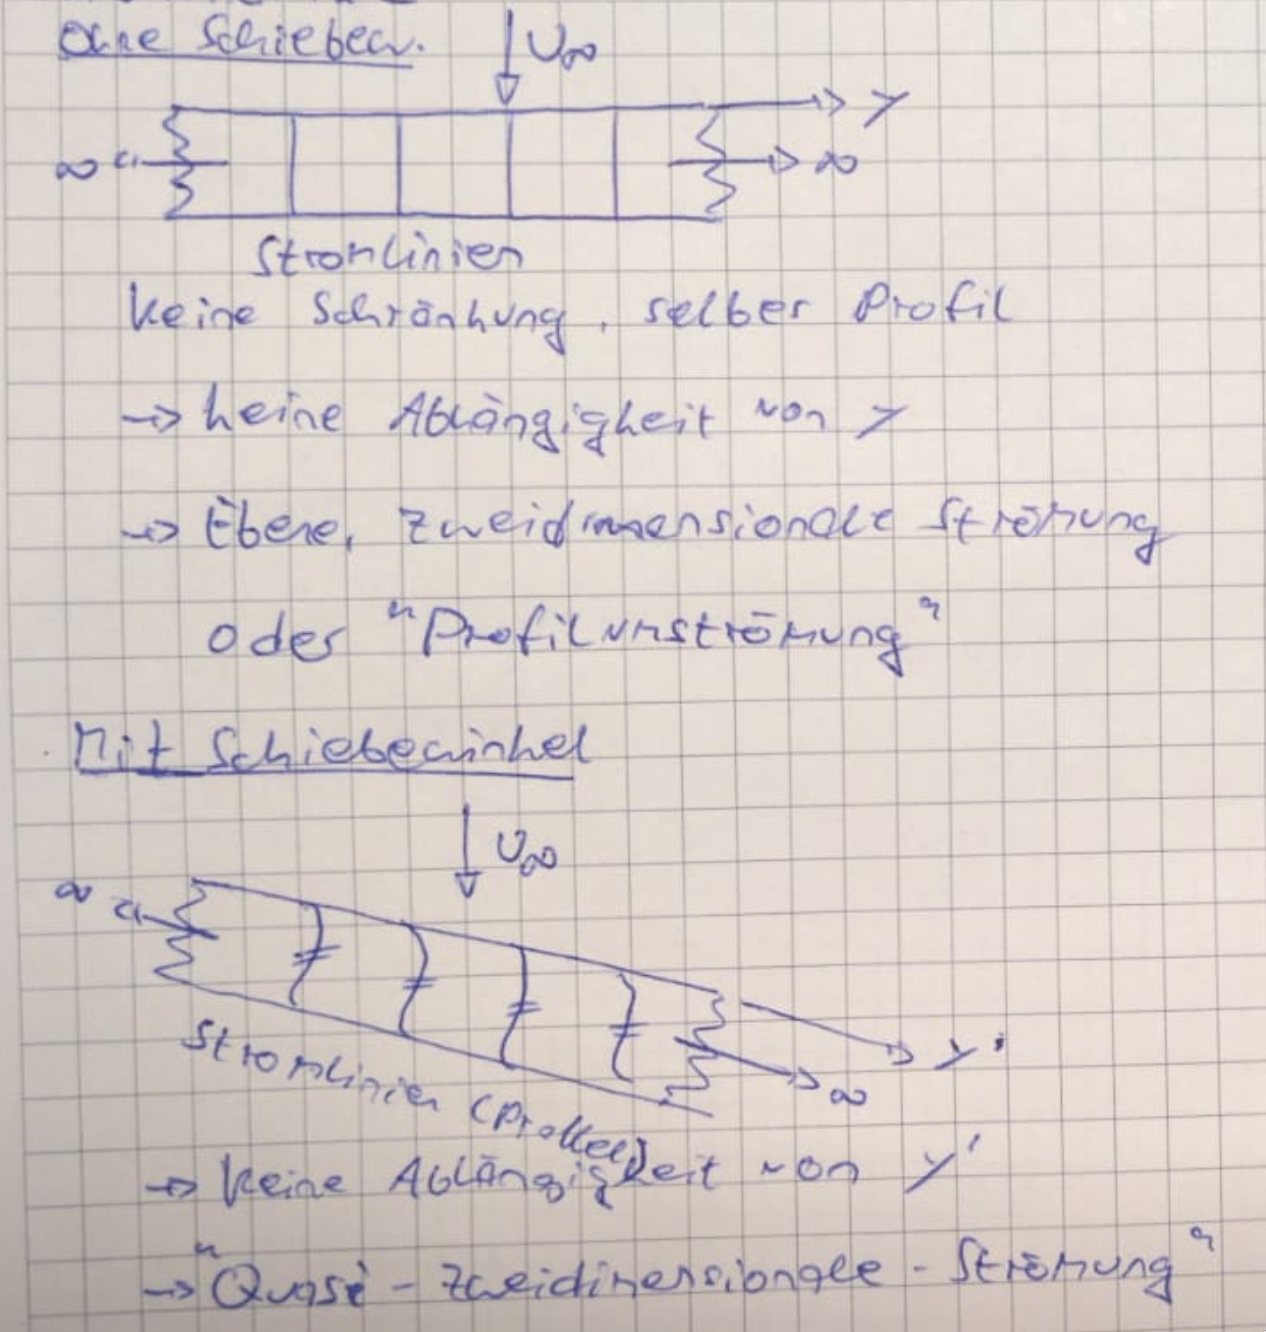 Ohne Schiebew.
U∞
y
∞
∞
Stromlinien
keine Schränkung, selber Profil
→ keine Abhängigkeit von y
→ Ebene, zweidimensionale Strömung
oder "Profilumströmung"
Mit Schiebewinkel
U∞
∞
y'
∞
Stromlinien (Parallel)
→ keine Abhängigkeit von y'
→ "Quasi - zweidimensionale - Strömung"